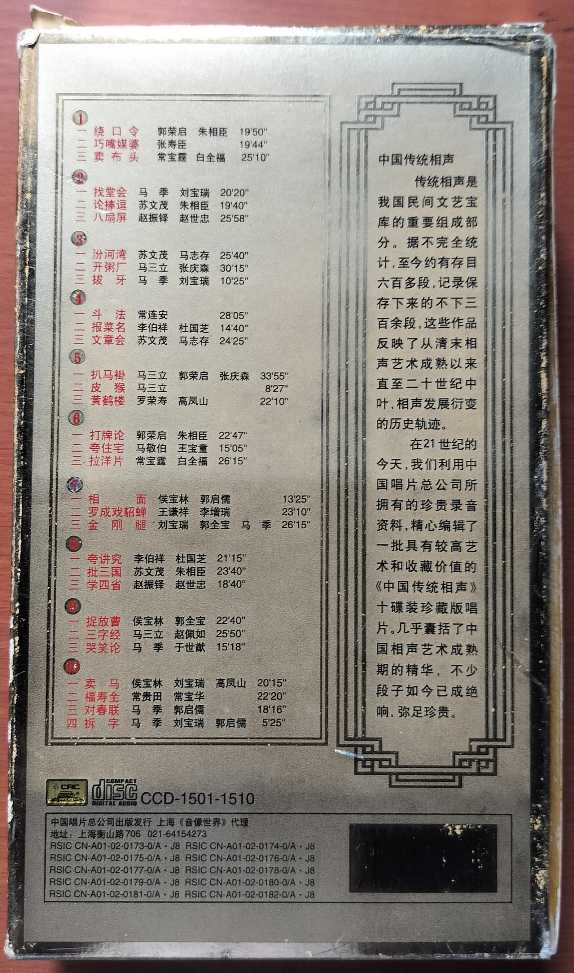 1
一 绕口令 郭荣启 朱相臣 19'50"
二 巧嘴媒婆 张寿臣 19'44"
三 卖布头 常宝霆 白全福 25'10"
2
一 找堂会 马季 刘宝瑞 20'20"
二 论捧逗 苏文茂 朱相臣 19'40"
三 八扇屏 赵振铎 赵世忠 25'58"
3
一 汾河湾 苏文茂 马志存 25'40"
二 开粥厂 马三立 张庆森 30'15"
三 拔牙 马季 刘宝瑞 10'25"
4
一 斗法 常连安 28'05"
二 报菜名 李伯祥 杜国芝 14'40"
三 文章会 苏文茂 马志存 24'25"
5
一 扒马褂 马三立 郭荣启 张庆森 33'55"
二 皮猴 马三立 8'27"
三 黄鹤楼 罗荣寿 高凤山 22'10"
6
一 打牌论 郭荣启 朱相臣 22'47"
二 夸住宅 马敬伯 王宝童 15'05"
三 拉洋片 常宝霆 白全福 26'15"
一 相面 侯宝林 郭启儒 13'25"
二 罗成戏貂蝉 王谦祥 李增瑞 23'10"
三 金刚腿 刘宝瑞 郭全宝 马季 26'15"
一 夸讲究 李伯祥 杜国芝 21'15"
二 批三国 苏文茂 朱相臣 23'40"
三 学四省 赵振铎 赵世忠 18'40"
一 捉放曹 侯宝林 郭全宝 22'40"
二 三字经 马三立 赵佩如 25'50"
三 哭笑论 马季 于世猷 15'18"
一 卖马 侯宝林 刘宝瑞 高凤山 20'15"
二 福寿全 常贵田 常宝华 22'20"
三 对春联 马季 郭启儒 18'16"
四 拆字 马季 刘宝瑞 郭启儒 5'25"
中国传统相声
传统相声是
我国民间文艺宝
库的重要组成部
分。据不完全统
计，至今约有存目
六百多段，记录保
存下来的不下三
百余段，这些作品
反映了从清末相
声艺术成熟以来
直至二十世纪中
叶，相声发展衍变
的历史轨迹。
在21世纪的
今天，我们利用中
国唱片总公司所
拥有的珍贵录音
资料，精心编辑了
一批具有较高艺
术和收藏价值的
《中国传统相声》
十碟装珍藏版唱
片。几乎囊括了中
国相声艺术成熟
期的精华，不少
段子如今已成绝
响，弥足珍贵。
CRC
COMPACT
disc
DIGITAL AUDIO
CCD-1501-1510
中国唱片总公司出版发行 上海《音像世界》代理
地址：上海衡山路706 021-64154273
RSIC CN-A01-02-0173-0/A·J8 RSIC CN-A01-02-0174-0/A·J8
RSIC CN-A01-02-0175-0/A·J8 RSIC CN-A01-02-0176-0/A·J8
RSIC CN-A01-02-0177-0/A·J8 RSIC CN-A01-02-0178-0/A·J8
RSIC CN-A01-02-0179-0/A·J8 RSIC CN-A01-02-0180-0/A·J8
RSIC CN-A01-02-0181-0/A·J8 RSIC CN-A01-02-0182-0/A·J8